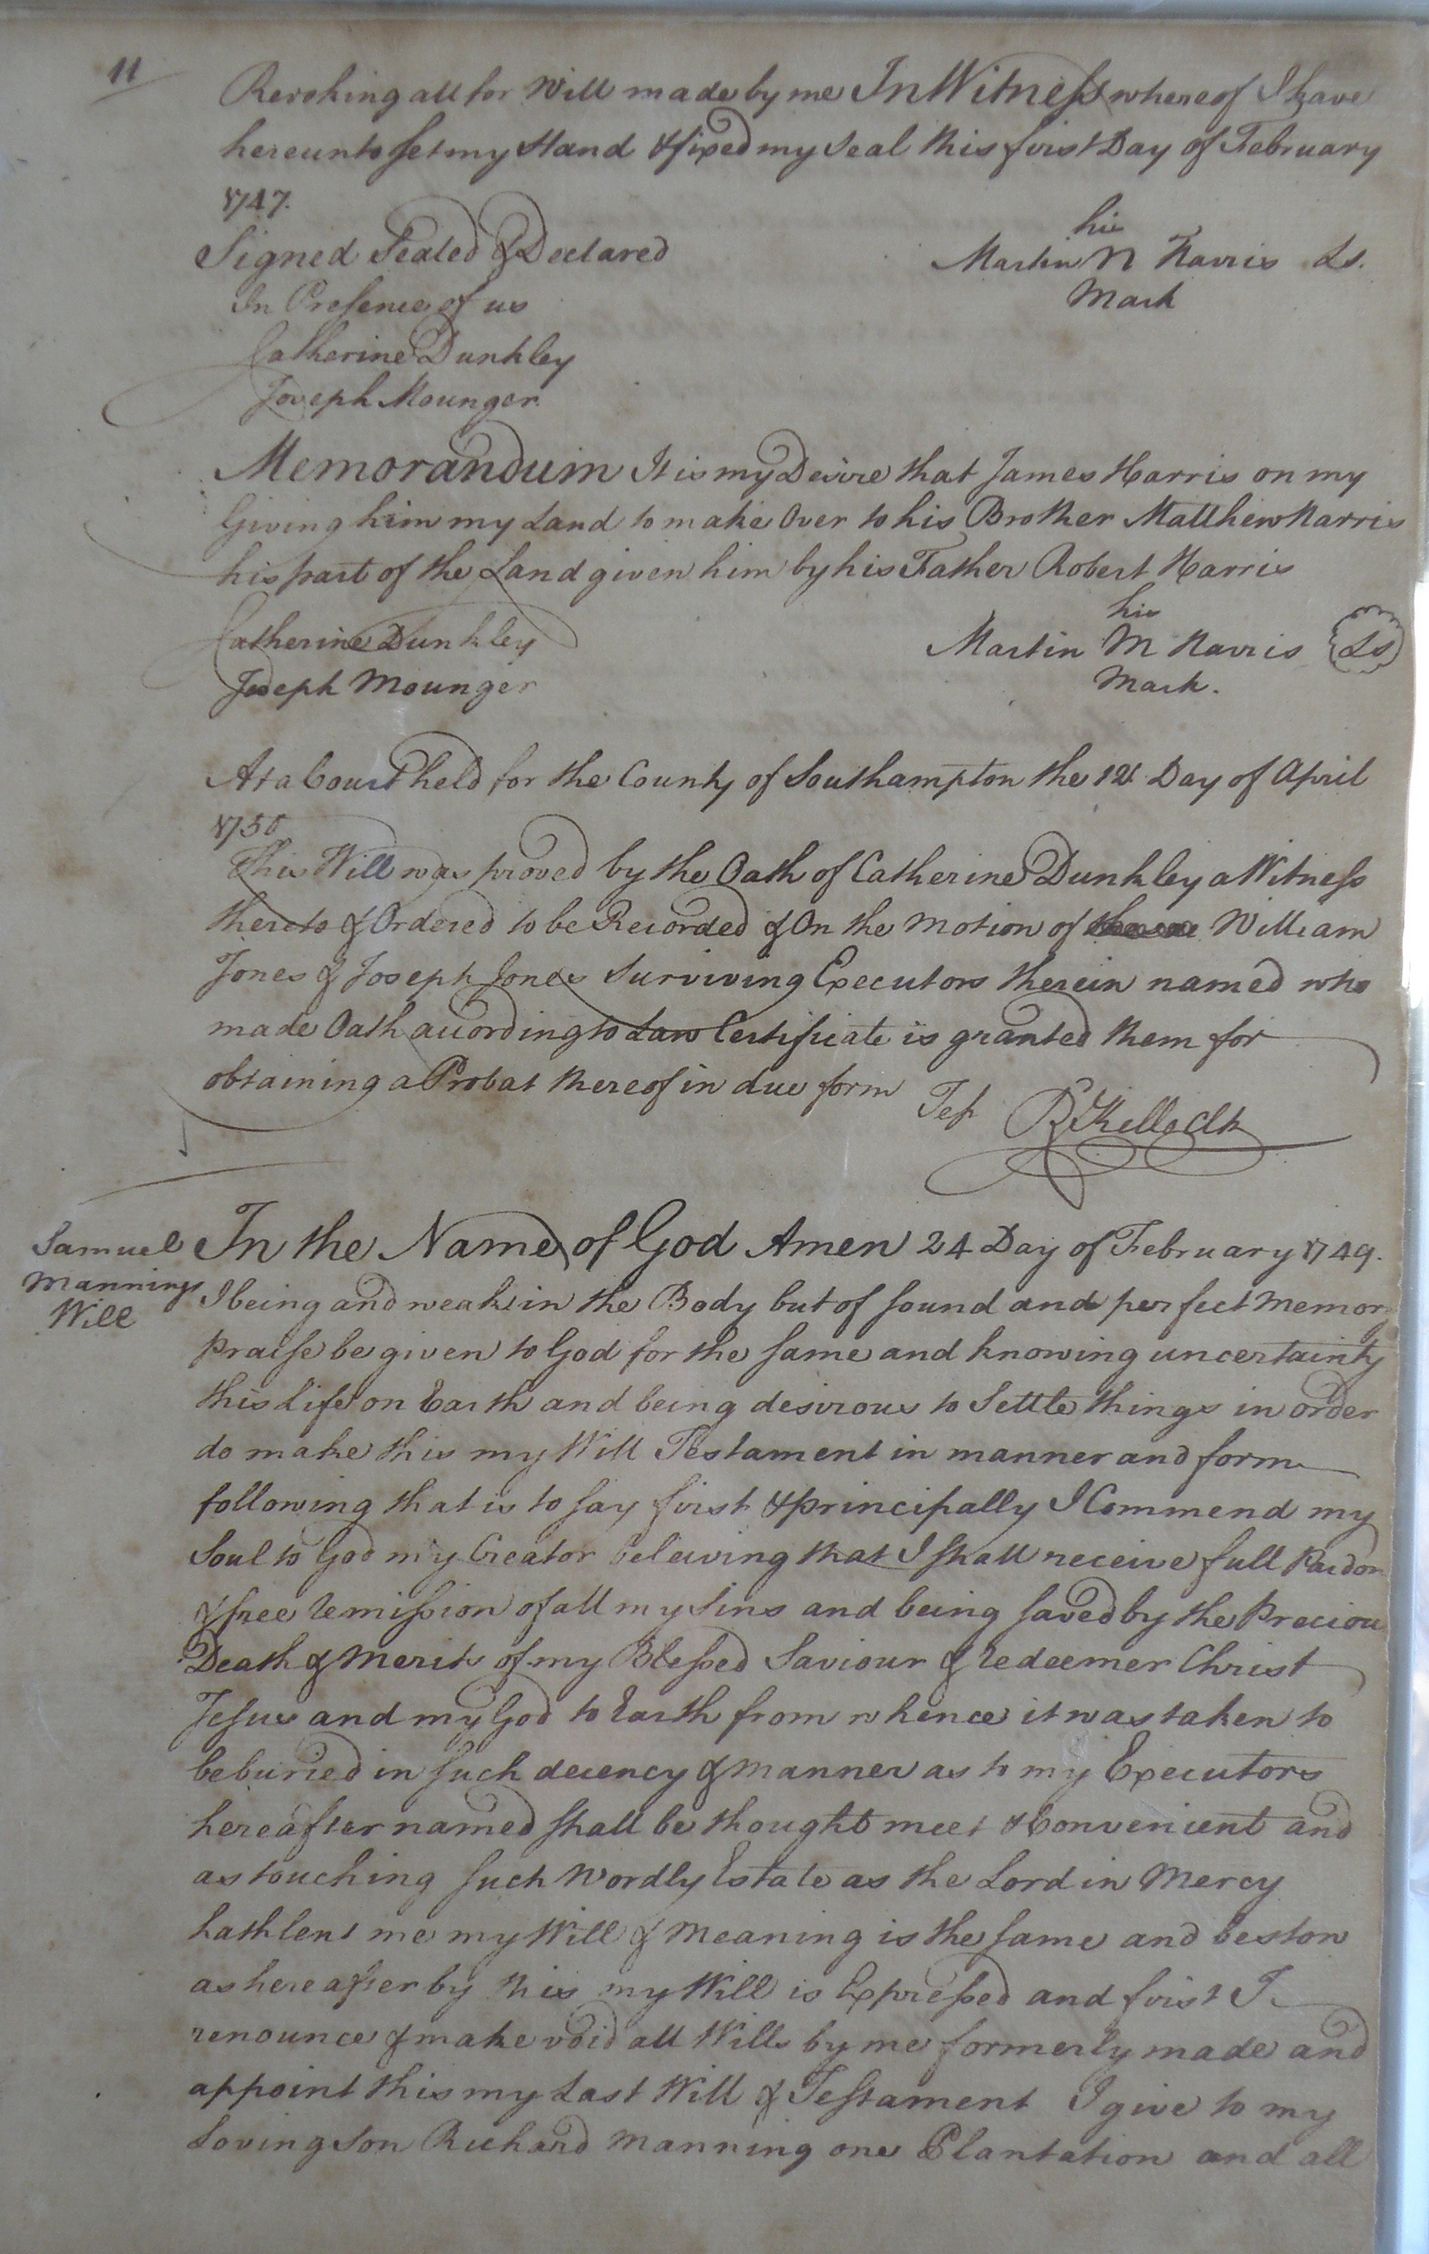 11
Revoking all for Will made by me In Witness whereof I have
hereunto set my Hand & fixed my Seal this first Day of February
1747.
Signed Sealed & Declared
his
Martin N Harris Ls.
In Presence of us
Mark
Catherine Dunkley
Joseph Mounger
Memorandum It is my Desire that James Harris on my
Giving him my Land to make Over to his Brother Matthew Harris
his part of the Land given him by his Father Robert Harris
his
Catherine Dunkley
Martin M Harris Ls
Joseph Mounger
Mark.
At a Court held for the County of Southampton the 12 Day of April
1750
This Will was proved by the Oath of Catherine Dunkley a Witness
thereto & Ordered to be Recorded & On the Motion of William
Jones & Joseph Jones Surviving Executors therein named who
made Oath according to Law Certificate is granted them for
obtaining a Probat thereof in due form Test
Samuel
Mannings
Will
In the Name of God Amen 24 Day of February 1749.
I being and weak in the Body but of sound and perfect Memory
Praise be given to God for the same and knowing uncertainty
this Life on Earth and being desirous to Settle things in order
do make this my Will Testament in manner and form
following that is to say first & principally I Commend my
Soul to God my Creator beleiving that I shall receive full Pardon
& free Remission of all my Sins and being saved by the Preciou
Death & Merits of my Blessed Saviour & Redeemer Christ
Jesus and my God to Earth from whence it was taken to
be buried in such decency & manner as to my Executors
hereafter named shall be thought meet & Convenient and
as touching such Wordly Estate as the Lord in Mercy
hath lent me my Will & Meaning is the same and bestow
as hereafter by this my Will is Expressed and first I
renounce & make void all Wills by me formerly made and
appoint this my Last Will & Testament I give to my
Loving Son Richard Manning one Plantation and all